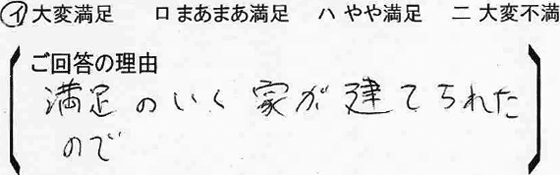 イ 大変満足 ロ まあまあ満足 ハ やや満足 ニ 大変不満
ご回答の理由
満足のいく家が建てられた
ので